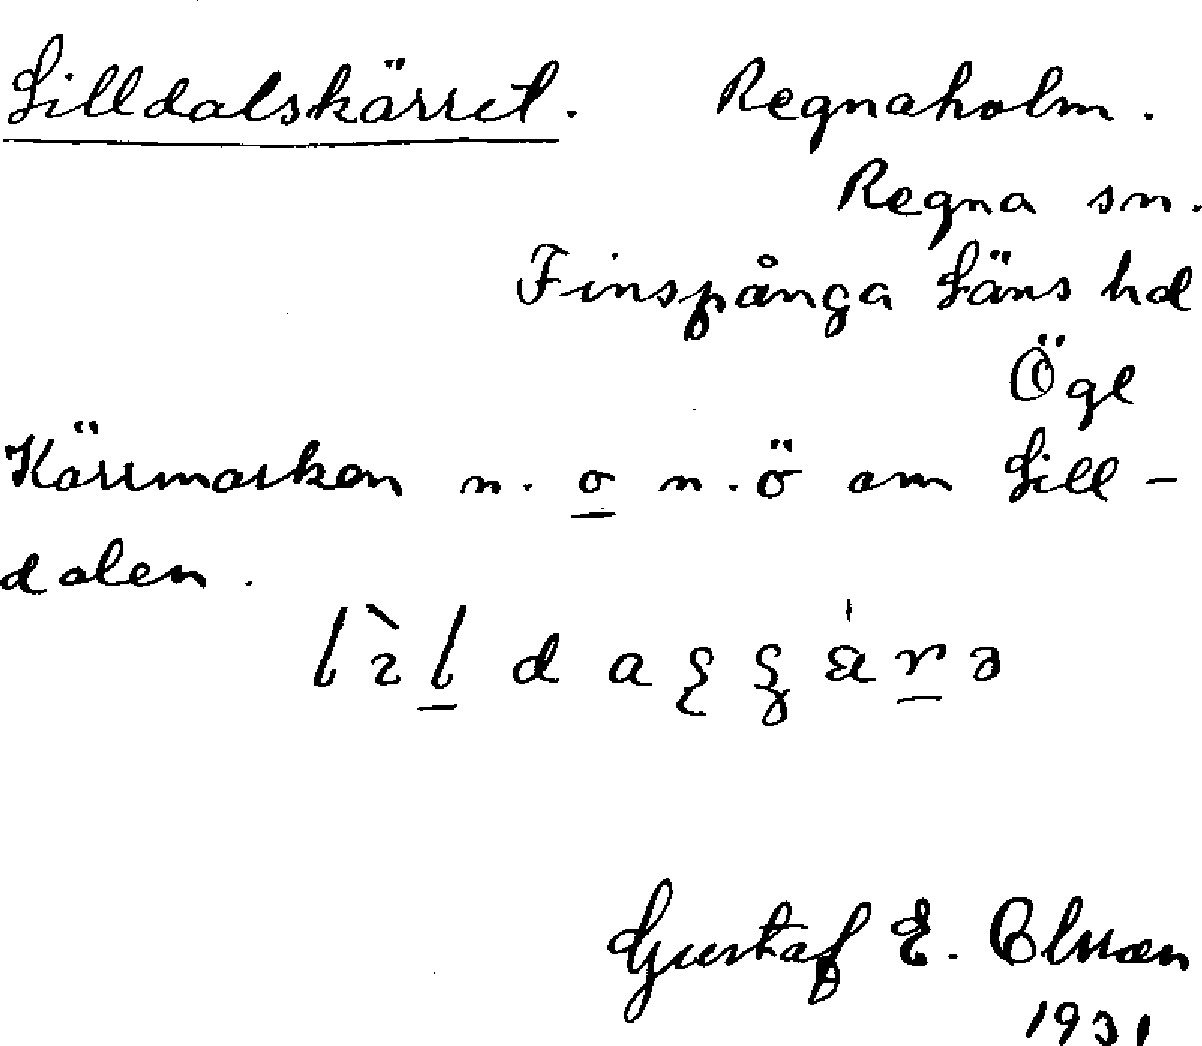 Lilldalskärret. Regnaholm.
Regna sn.
Finspånga Läns hd
Ögl
Kärrmarken n. o n.ö om Lill-
dalen.
Gustaf E. Olsson
1931